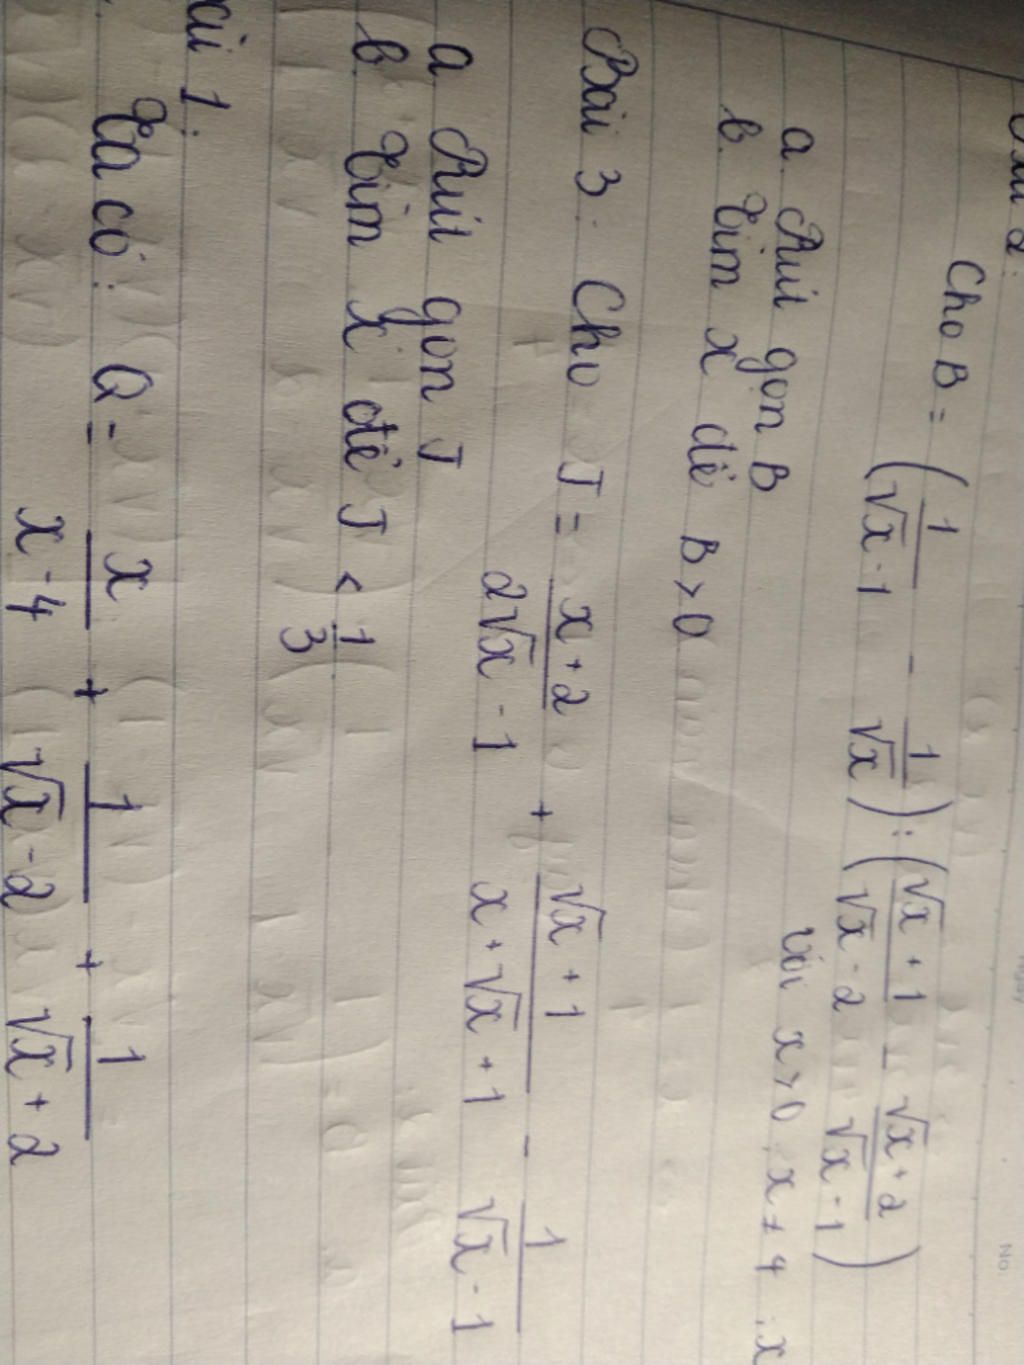 Bài 2:
Cho B = (1/(√x - 1) - 1/√x) : ((√x + 1)/(√x - 2) - (√x + 2)/(√x - 1))
với x > 0, x ≠ 4, x
a. Rút gọn B
b. Tìm x để B > 0
Bài 3. Cho J = (x + 2)/(2√x - 1) + (√x + 1)/(x + √x + 1) - 1/(√x - 1)
a Rút gọn J
b. Tìm x để J < 1/3
ài 1:
Ta có: Q = x/(x - 4) + 1/(√x - 2) + 1/(√x + 2)